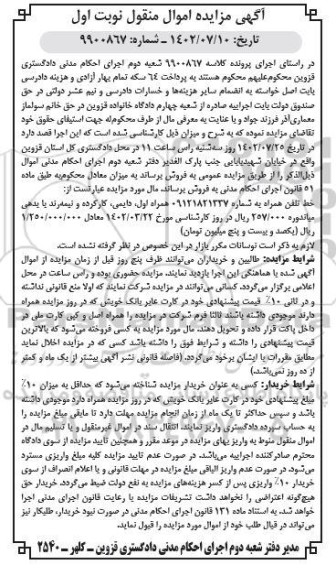 آگهی مزایده اموال منقول نوبت اول
تاریخ: ۱۴۰۲/۰۷/۱۰ ــ شماره: ۹۹۰۰۸۶۷
در راستای اجرای پرونده کلاسه ۹۹۰۰۸۶۷ شعبه دوم اجرای احکام مدنی دادگستری
قزوین محکوم‌علیهم محکوم هستند به پرداخت ۶۴ سکه تمام بهار آزادی و هزینه دادرسی
بابت اصل خواسته به انضمام سایر هزینه‌ها و خسارات دادرسی و نیم عشر دولتی در حق
صندوق دولت بابت اجراییه صادره از شعبه چهارم دادگاه خانواده قزوین در حق خانم سولماز
معماری‌آذر فرزند جواد و با عنایت به معرفی مال از طرف محکوم‌له جهت استیفای حقوق خود
تقاضای مزایده نموده که به شرح و میزان ذیل کارشناسی شده است که این اجرا قصد دارد
در تاریخ ۱۴۰۲/۰۷/۲۵ روز سه‌شنبه راس ساعت ۱۱ در محل دادگستری کل استان قزوین
واقع در خیابان شهیدبابایی جنب پارک الغدیر دفتر شعبه دوم اجرای احکام مدنی اموال
ذیل‌الذکر را از طریق مزایده عمومی به فروش برساند به میزان معادل محکوم‌به طبق ماده
۵۱ قانون اجرای احکام مدنی به فروش برساند. مال مورد مزایده عبارتست از:
خط تلفن همراه به شماره ۰۹۱۲۱۸۲۱۳۳۷ همراه اول، دایمی، کارکرده و نیمه‌رند با بدهی
میاندوره ۲۵۷/۰۰۰ ریال در روز کارشناسی مورخ ۱۴۰۲/۰۳/۲۲ معادل ۱/۲۵۰/۰۰۰/۰۰۰
ریال (یکصد و بیست و پنج میلیون تومان)
لازم به ذکر است نوسانات مکرر بازار در این خصوص در نظر گرفته نشده است.
شرایط مزایده: طالبین و خریداران می‌توانند ظرف پنج روز قبل از زمان مزایده از اموال
آگهی شده با هماهنگی این اجرا بازدید نمایند. مزایده حضوری بوده و راس ساعت در محل
اعلامی برگزار می‌گردد. کسانی می‌توانند در مزایده شرکت نمایند که اولا منع قانونی نداشته
و در ثانی ۱۰٪ قیمت پیشنهادی خود در کارت عابر بانک خویش که در روز مزایده همراه
دارند موجودی داشته باشند ثالثا فرم شرکت در مزایده را همراه اصل و کپی کارت ملی در
داخل پاکت قرار داده و تحویل دهند. مال مورد مزایده به کسی فروخته می‌شود که بالاترین
قیمت پیشنهادی را داشته و شرایط فوق را داشته باشد کسی که در مزایده اخلال نماید
مطابق مقررات با ایشان برخورد می‌گردد. (فاصله قانونی نشر آگهی بیشتر از یک ماه و کمتر
از ده روز نمی‌باشد)
شرایط خریدار: کسی به عنوان خریدار مزایده شناخته می‌شود که حداقل به میزان ۱۰٪
مبلغ پیشنهادی خود در کارت عابر بانک خویش که در روز مزایده همراه دارد موجودی داشته
باشد و سپس حداکثر تا یک ماه از زمان انجام مزایده مهلت دارد تا مابقی مبلغ مزایده را
به حساب سپرده دادگستری واریز نمایند. انتقال سند در اموال غیرمنقول و یا تسلیم مال در
اموال منقول منوط به واریز بهای مزایده در موعد مقرر و همچنین تایید مزایده از سوی دادگاه
محترم صادرکننده اجراییه می‌باشد. در صورت عدم تایید مزایده کلیه مبلغ واریزی مسترد
می‌شود. در صورت عدم واریز الباقی مبلغ مزایده در مهلت قانونی و یا اعلام انصراف از سوی
خریدار ۱۰٪ واریزی پس از کسر هزینه‌های مزایده به نفع دولت ضبط می‌گردد. خریدار حق
هیچ‌گونه اعتراضی را نخواهد داشت تشریفات مزایده با رعایت قانون اجرای مدنی اجرا
خواهد شد. به استناد ماده ۱۳۱ قانون اجرای احکام مدنی در صورت نبود خریدار، طلبکار نیز
می‌تواند در قبال طلب خود از اموال مورد مزایده را قبول نماید.
مدیر دفتر شعبه دوم اجرای احکام مدنی دادگستری قزوین ــ کلهر ــ ۲۵۴۰